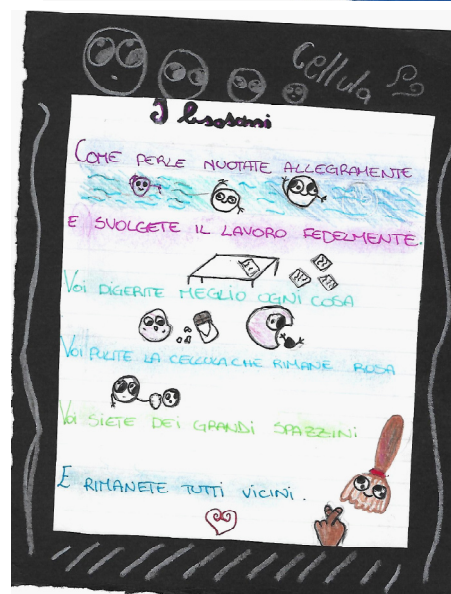 Cellula
I lisosomi
COME PERLE NUOTATE ALLEGRAMENTE
E SVOLGETE IL LAVORO FEDELMENTE.
Voi DIGERITE MEGLIO OGNI COSA
Voi PULITE LA CELLULA CHE RIMANE ROSA
Voi SIETE DEI GRANDI SPAZZINI
E RIMANETE TUTTI VICINI.